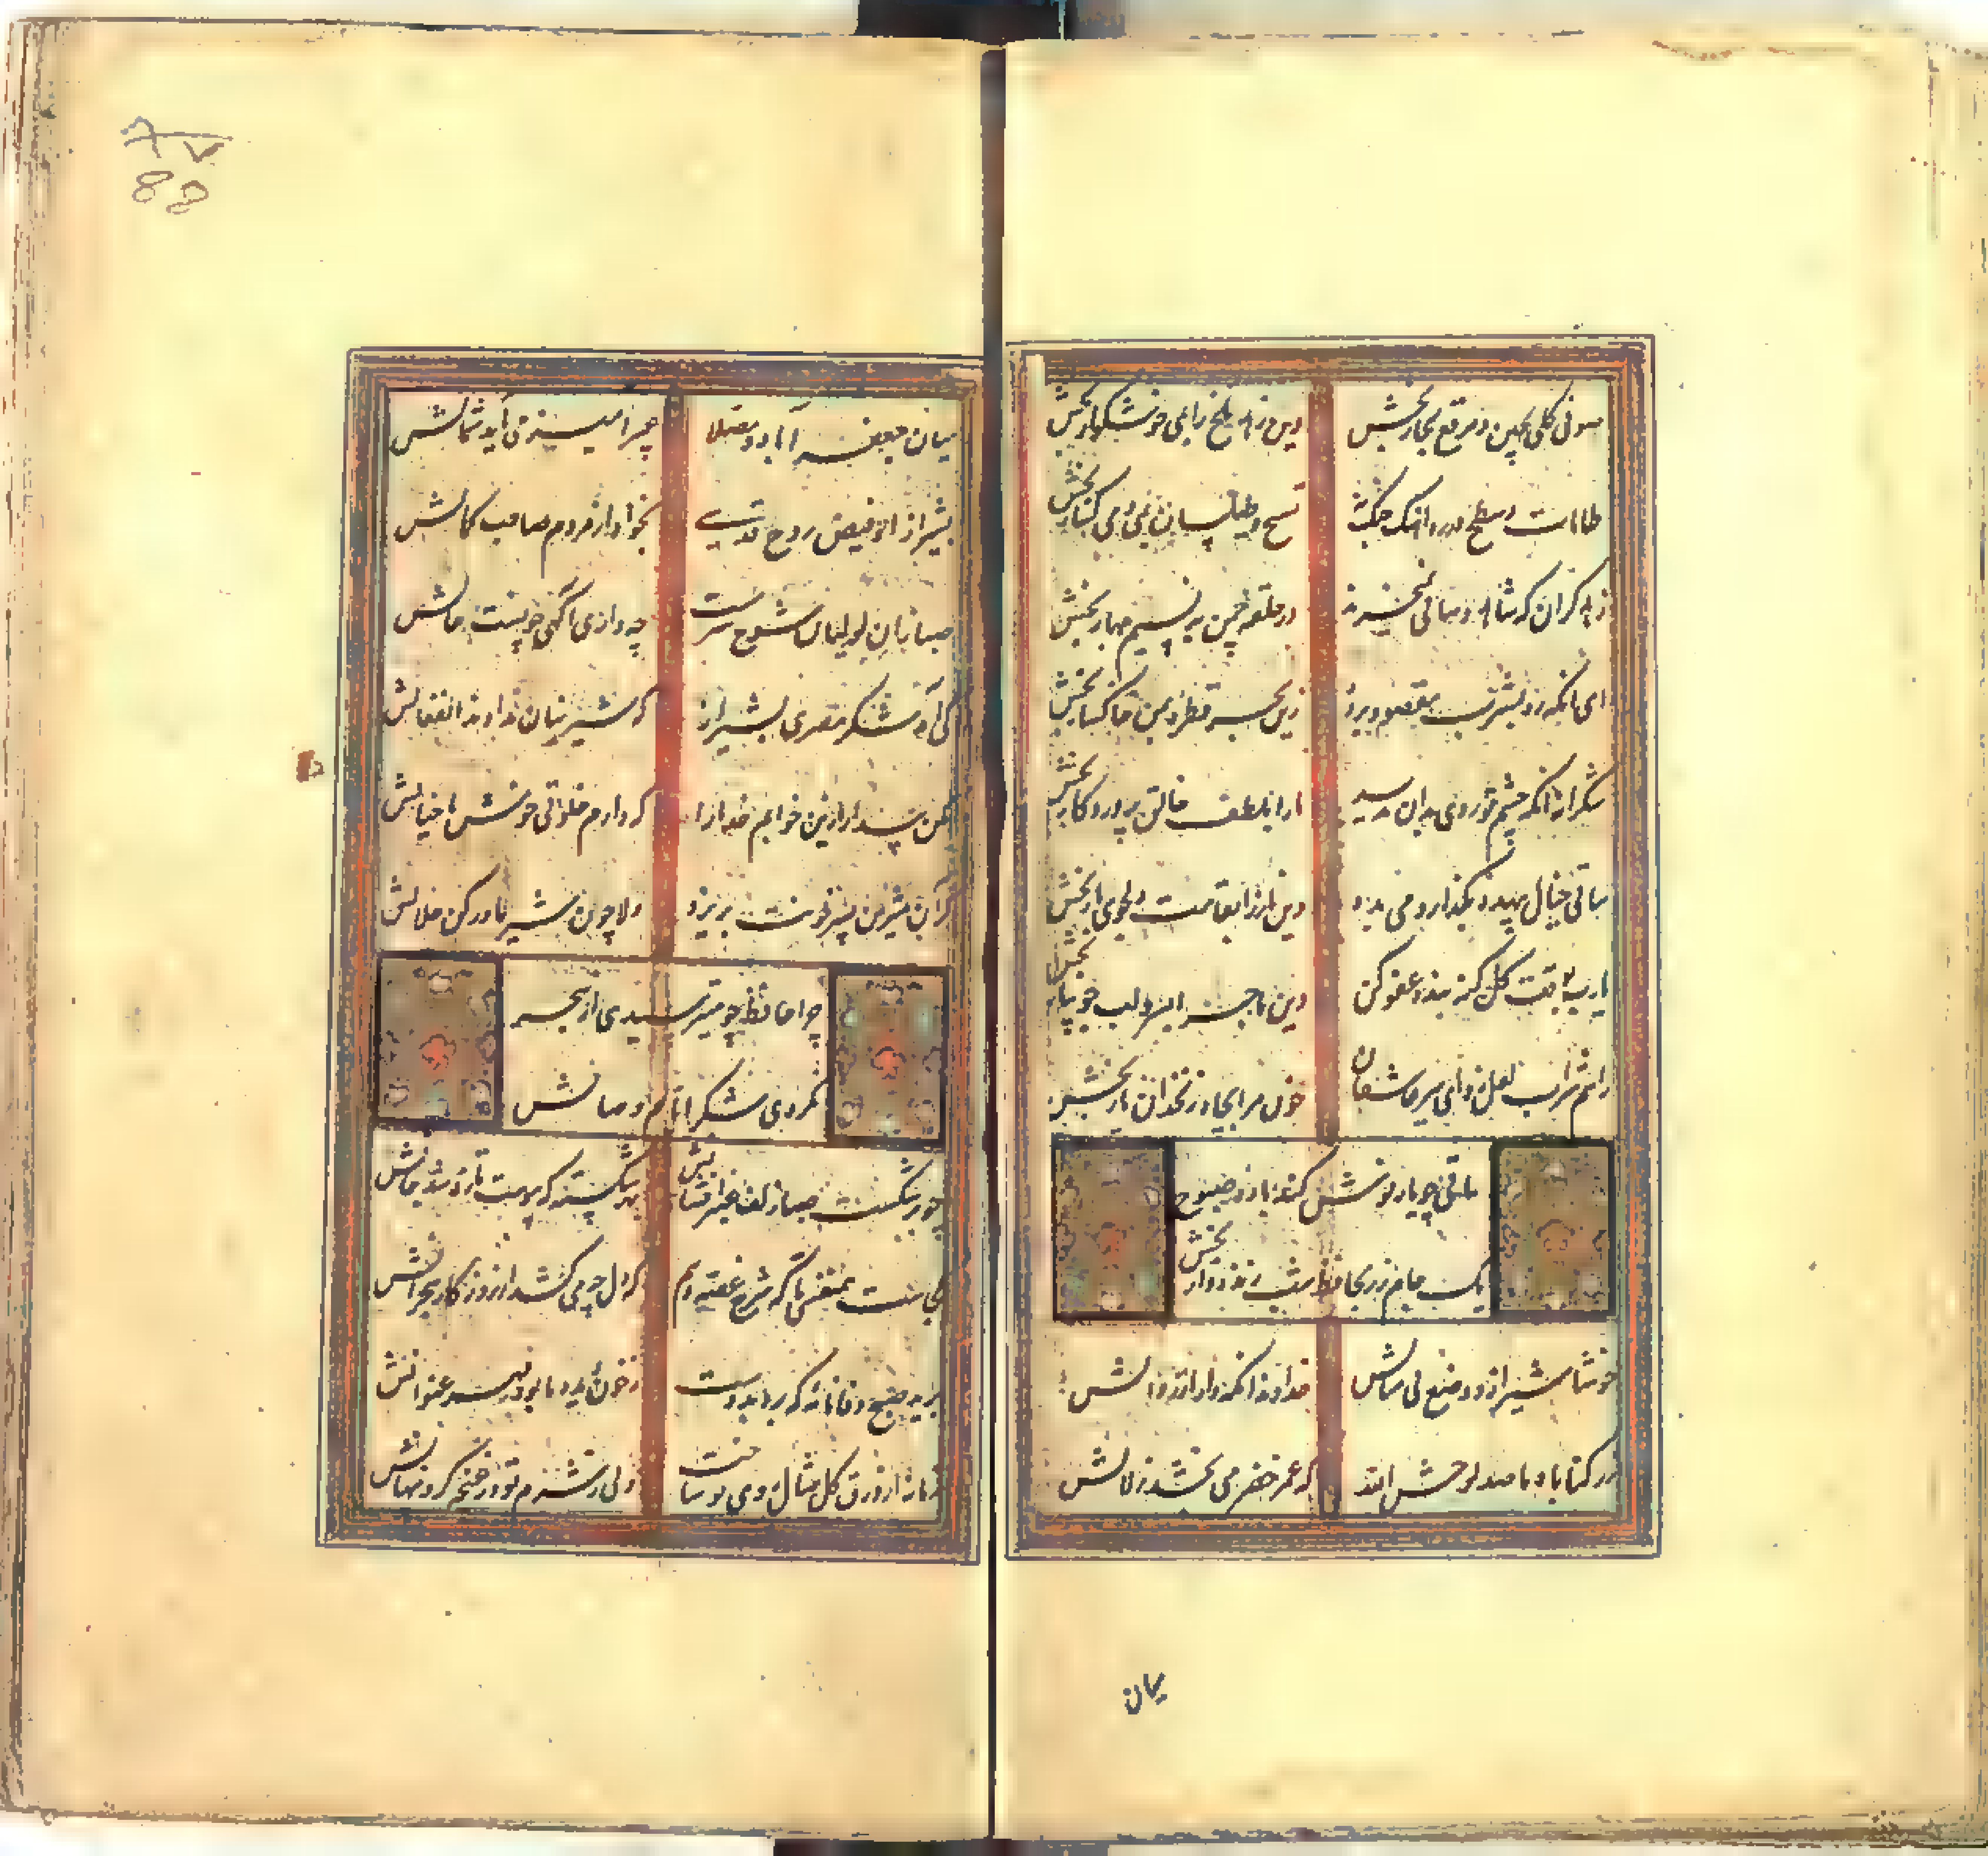 صوفی گلی بچین و مرقع بخار بخش
وین زهد تلخ را بمی خوشگوار بخش
طامات و شطح در ره آهنگ چنگ
تسبیح و طیلسان بمی و می گسار بخش
زهد گران که شاهد و ساقی نمیخرند
در حلقه چمن به نسیم بهار بخش
ای آنکه ره بمشرب مقصود برده
زین بحر قطره بمن خاکسار بخش
شکرانه آنکه چشم تو روی بدان ندید
ما را بلطف خالق پروردگار بخش
یارب بوقت گل گنه بنده عفو کن
وین ماجرا بسرو لب جویبار بخش
راهم شراب لعل زد ای میر عاشقان
خون مرا بچاه زنخدان یار بخش
ساقی چو یار نوش کند باده صبوح
یک جام زر بحافظ شب زنده‌دار بخش
خوشا شیراز و وضع بی مثالش
خداوندا نگه دار از زوالش
ز رکناباد ما صد لوحش الله
که عمر خضر می بخشد زلالش
میان
میان جعفرآباد و مصلا
عبیر آمیز می آید شمالش
بشیراز آی و فیض روح قدسی
بخواه از مردم صاحب کمالش
صبا زان لولیان شنگ سرمست
چه داری آگهی چونست حالش
که نام قند مصری بشیراز
که شیرینان ندادند انفعالش
مکن بیدار ازین خوابم خدا را
که دارم خلوتی خوش با خیالش
گر آن شیرین پسر خونت بریزد
دلا چون شیر مادر کن حلالش
چرا حافظ چو میترسیدی از هجر
نکردی شکر ایام وصالش
چو برشکست صبا زلف عنبر افشانش
بهر شکسته که پیوست تازه شد جانش
کجاست همنفسی تا که شرح غصه دهم
که دل چه می کشد از روزگار هجرانش
برید صبح وفا نامه که برد بدوست
ز خون دیده ما بود مهر عنوانش
زمانه از ورق گل مثال روی تو ساخت
ولی ز شرم تو در غنچه کرد پنهانش